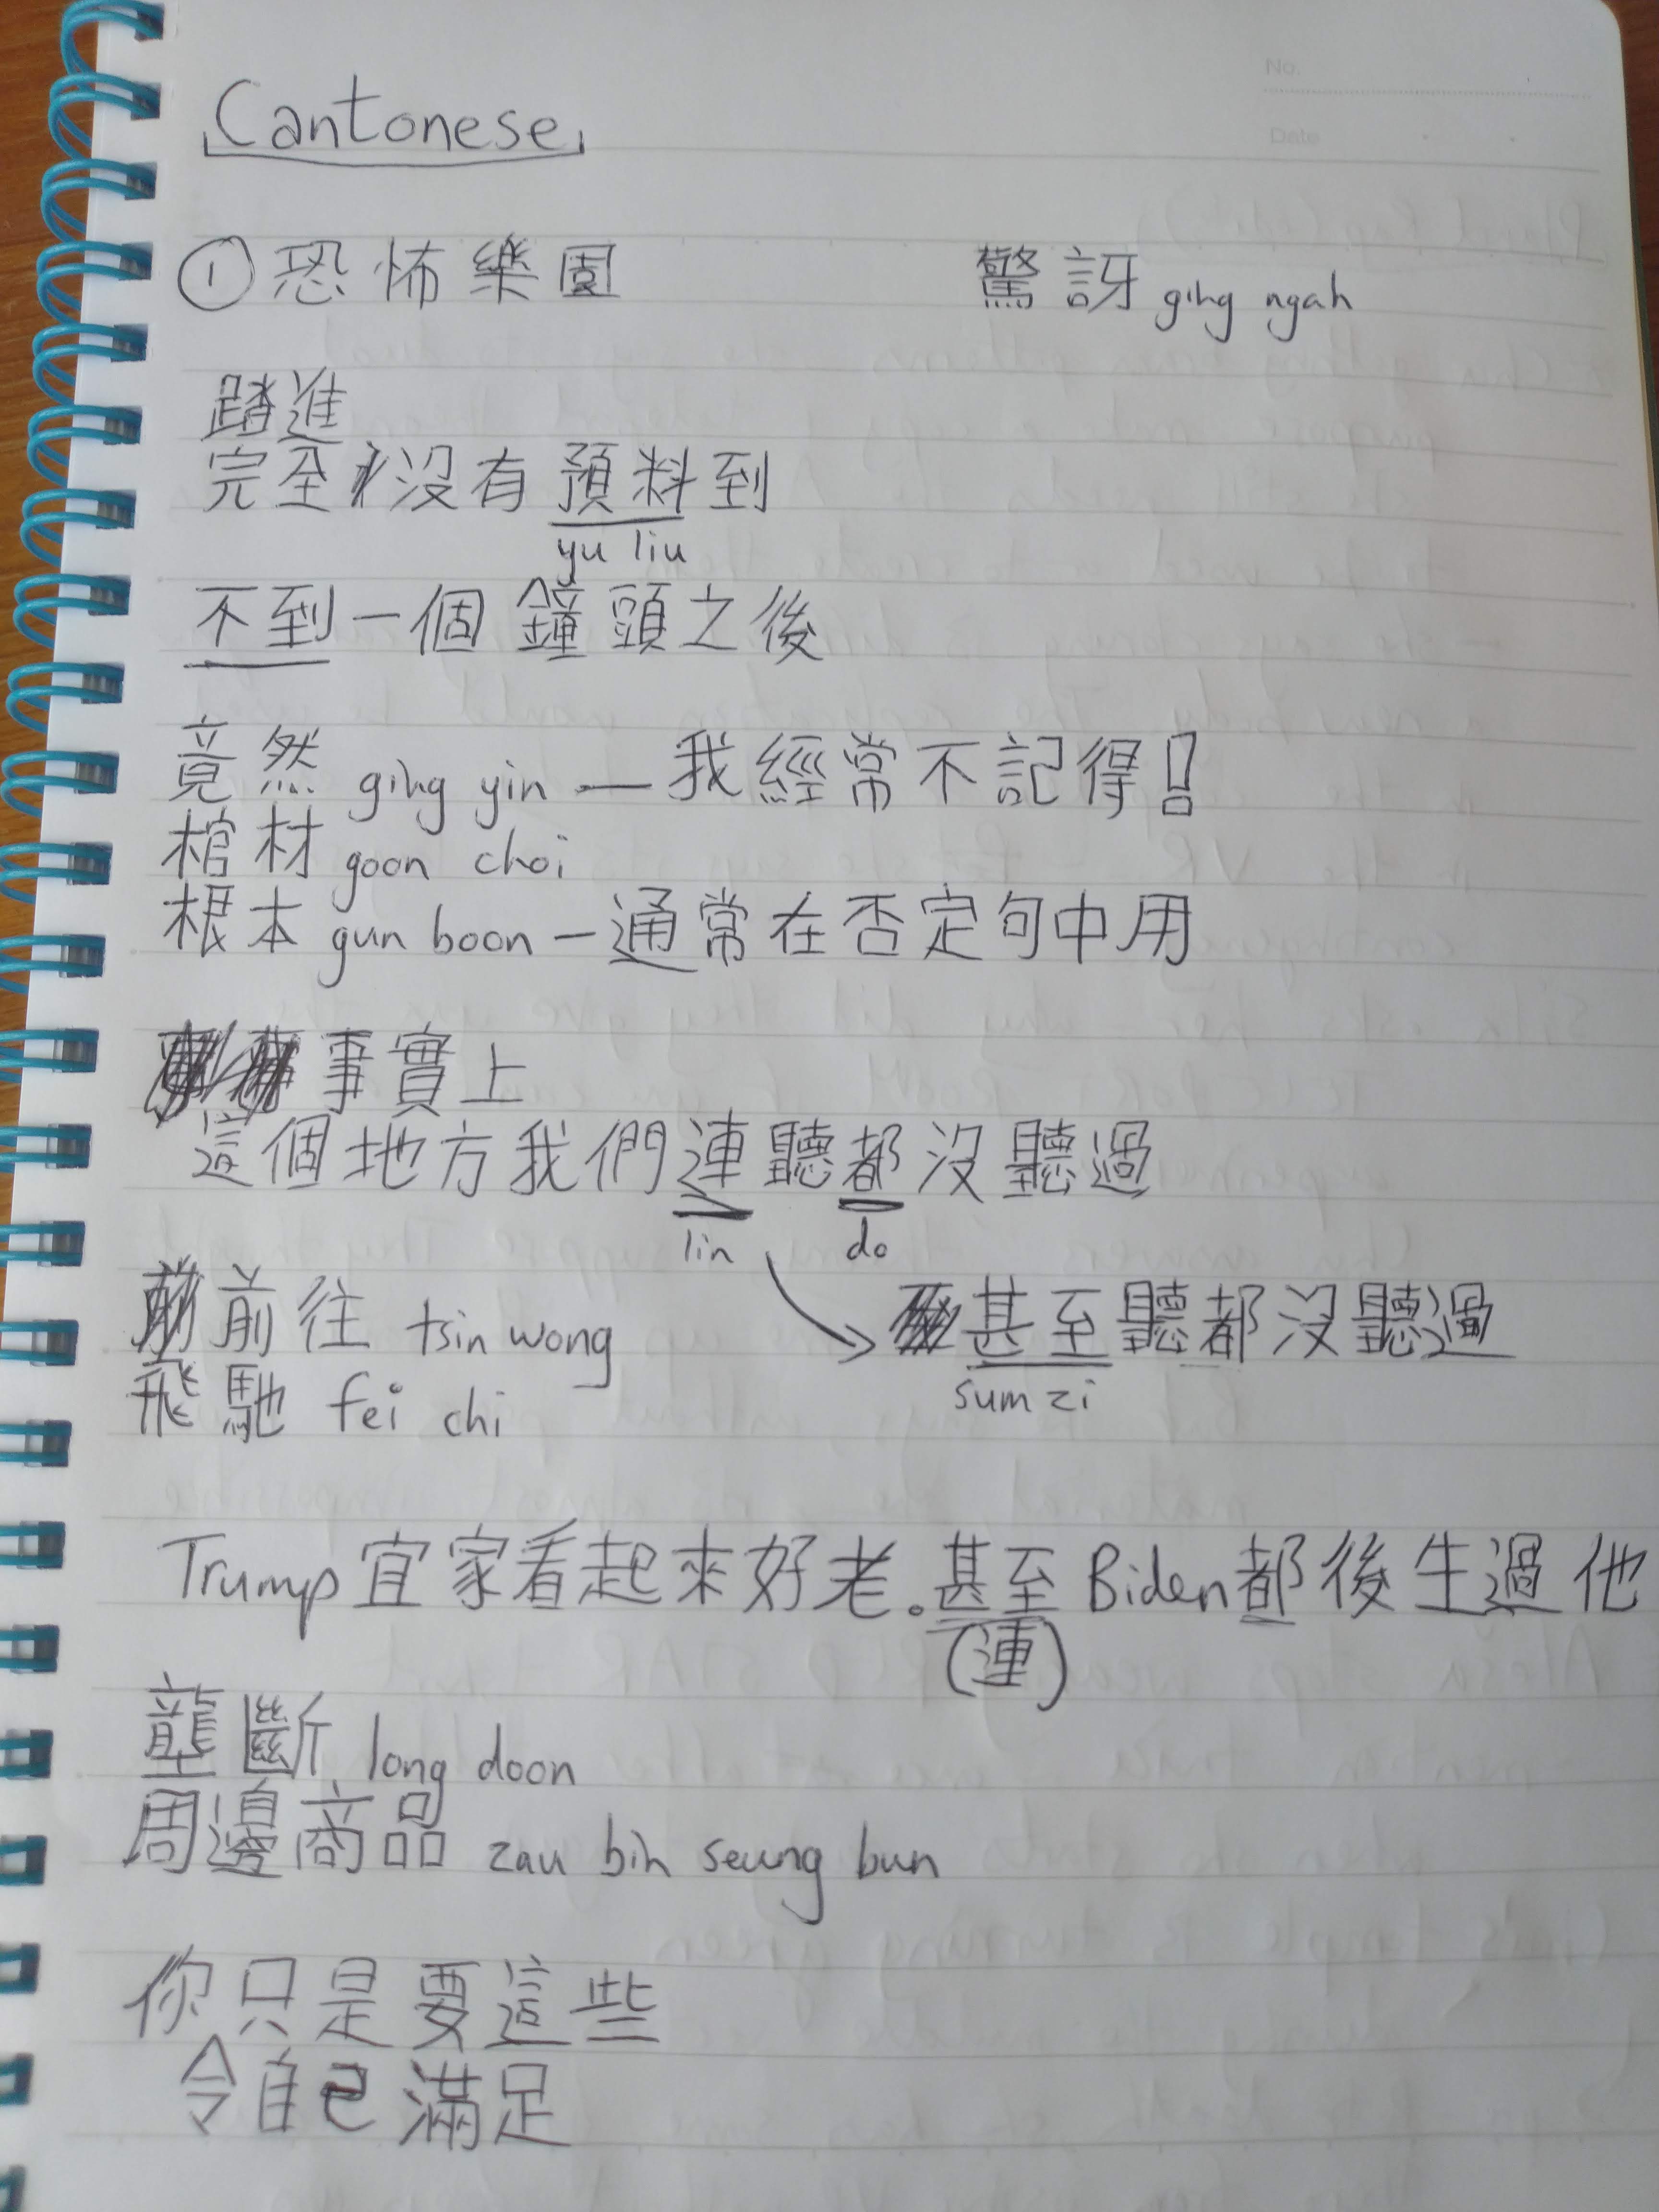 No.
Date
Cantonese
① 恐怖樂園 驚訝 ging ngah
踏進
完全沒有預料到
yu liu
不到一個鐘頭之後
竟然 ging yin — 我經常不記得!
棺材 goon choi
根本 gun boon — 通常在否定句中用
事實上
這個地方我們連聽都沒聽過
lin do
前往 tsin wong
甚至聽都沒聽過
sum zi
飛馳 fei chi
Trump宜家看起來好老。甚至Biden都後生過他
(連)
壟斷 long doon
周邊商品 zau bin seung bun
你只是要這些
令自己滿足